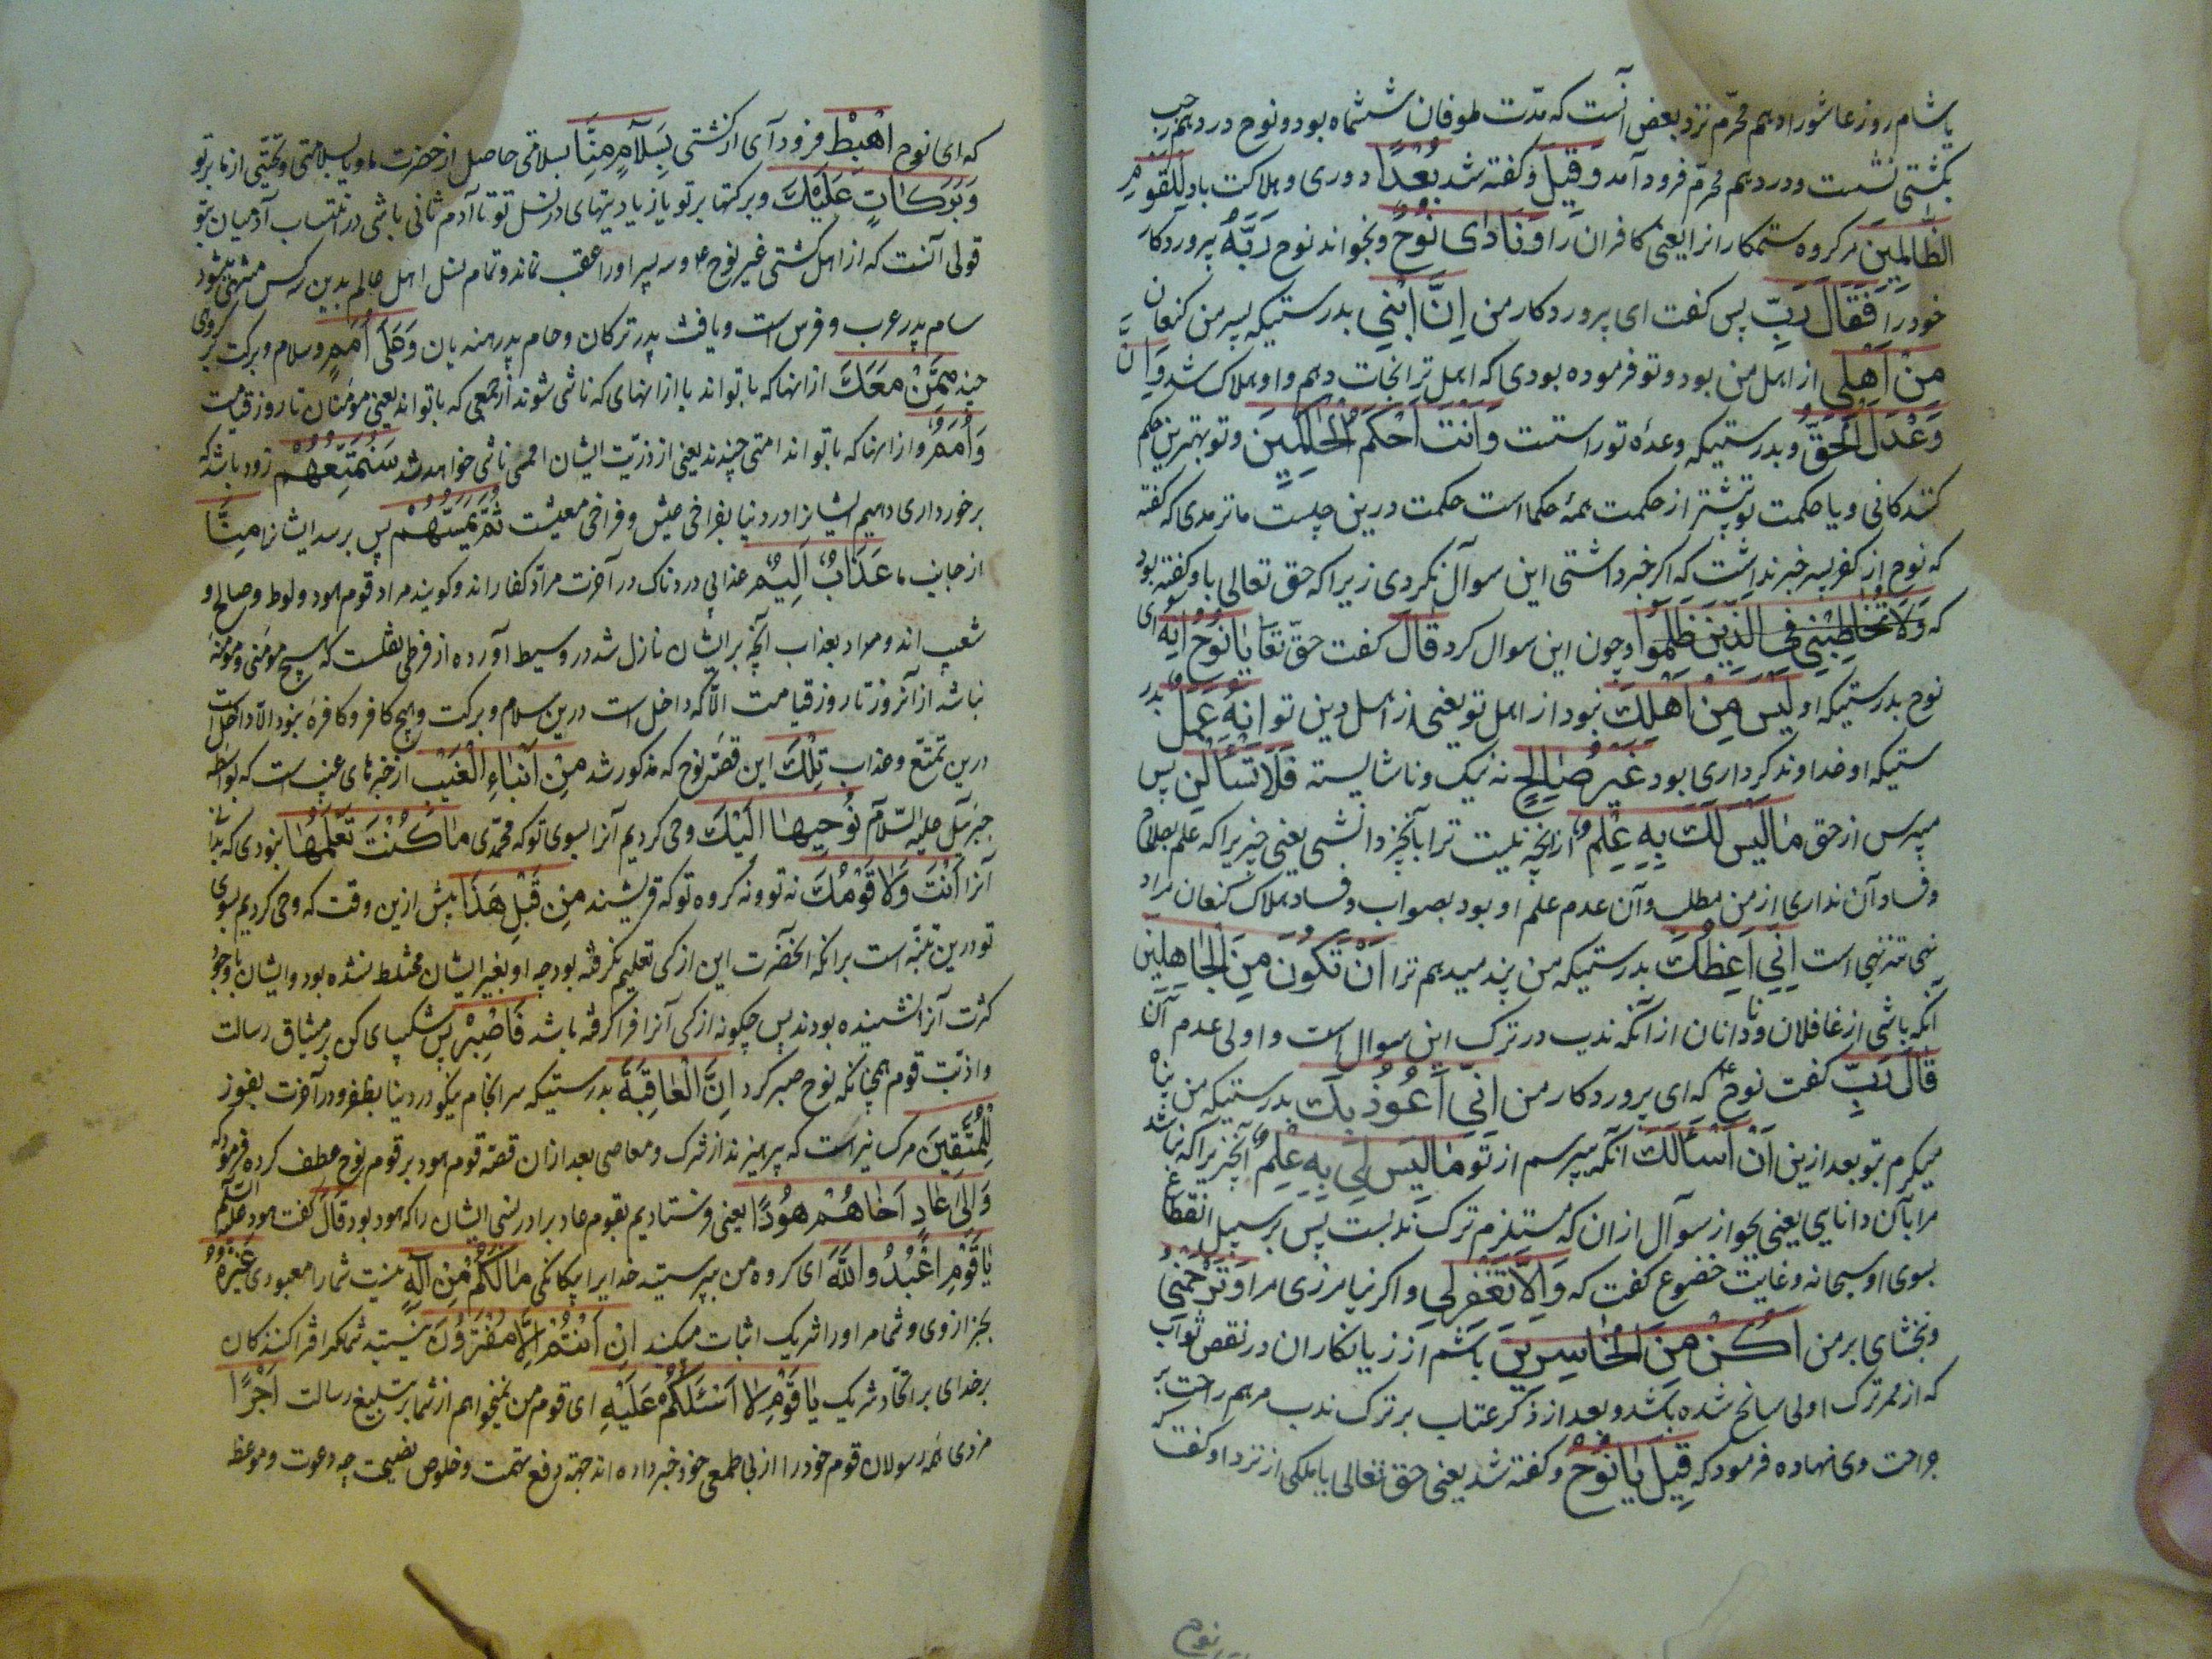 یا شام روز عاشورا دهم محرّم نزد بعض آنست که مدّت طوفان ششماه بود و نوح در دهم رجب
بکشتی نشست و در دهم محرّم فرود آمد وَقِیلَ و کفته شد بُعْدًا دوری و هلاکت باد لِلْقَوْمِ
الظَّالِمِینَ مر کروه ستمکارانرا یعنی کافران را وَنَادٰی نُوحٌ و بخواند نوح رَبَّهُ پروردکار
خود را فَقَالَ رَبِّ پس کفت ای پروردکار من اِنَّ ابْنِی بدرستیکه پسر من کنعان
مِنْ اَهْلِی از اهل من بود و تو فرموده بودی که اهل ترا نجات دهم و او هلاک شد وَاِنَّ
وَعْدَكَ الْحَقُّ و بدرستیکه وعدهٔ تو راستست وَاَنْتَ اَحْکَمُ الْحَاکِمِینَ و تو بهترین حکم
کنندکانی و یا حکمت تو بیشتر از حکمت همهٔ حکما است حکمت درین چیست ماتریدی که کفته
که نوح از کفر پسر خبر نداشت که اکر خبر داشتی این سوآل نکردی زیرا که حق تعالی باو کفته بود
که وَلَا تُخَاطِبْنِی فِی الَّذِینَ ظَلَمُوا و چون این سوال کرد قَالَ کفت حقّ تعا یَا نُوحُ اِنَّهُ ای
نوح بدرستیکه او لَیْسَ مِنْ اَهْلِكَ نبود از اهل تو یعنی از اهل دین تو اِنَّهُ عَمَلٌ بدر
ستیکه او خداوند کرداری بود غَیْرُ صَالِحٍ نه نیک و ناشایسته فَلَا تَسْأَلْنِ پس
مپرس از حق مَا لَیْسَ لَكَ بِهِ عِلْمٌ از آنچه نیست ترا بآنچیز دانشی یعنی چیزیرا که علم بصلاح
و فساد آن نداری از من مطلب و آن عدم علم او بود بصواب و فساد هلاک کنعان مراد
نهی تنزیهی است اِنِّی اَعِظُكَ بدرستیکه من پند میدهم ترا اَنْ تَکُونَ مِنَ الْجَاهِلِینَ
آنکه باشی از غافلان و نادانان از آنکه ندب در ترک این سوال است و اولی عدم آن
قَالَ رَبِّ کفت نوحؑ که ای پروردکار من اِنِّی اَعُوذُ بِكَ بدرستیکه من پناه
میکرم بتو بعد ازین اَنْ اَسْأَلَكَ آنکه بپرسم از تو مَا لَیْسَ لِی بِهِ عِلْمٌ آنچیزیرا که نباشد
مرا بآن دانایی یعنی بجواز سوآل از ان که مستلزم ترک ندبست پس بر سبیل انقطاع
بسوی او سبحانه و غایت خضوع کفت که وَاِلَّا تَغْفِرْلِی و اکر نیامرزی مرا وَتَرْحَمْنِی
و نبخشای بر من اَکُنْ مِنَ الْخَاسِرِینَ باشم از زیانکاران در نقص ثواب
که از ممر ترک اولی سانح شده باشد و بعد از ذکر عتاب بر ترک ندب مرهم راحت بر
جراحت وی نهاده فرمود که قِیلَ یَا نُوحُ و کفته شد یعنی حق تعالی یا ملکی از نزد او کفت
نوح
که ای نوح اهْبِطْ فرود آی از کشتی بِسَلَامٍ مِنَّا بسلامتی حاصل از حضرت ما و یا بسلامتی و تحیّتی از ما بر تو
وَبَرَکَاتٍ عَلَیْكَ و برکتها بر تو یا زیادتیهای در نسل تو تا آدم ثانی باشی در انتساب آدمیان بتو
قولی آنست که از اهل کشتی غیر نوحؑ و سه پسر او را عقب نماند و تمام نسل اهل عالم بدین سه کس منتهی میشود
سام پدر عرب و فرس است و یافث پدر ترکان و حام پدر هندیان وَعَلٰی اُمَمٍ و سلام و برکت بر کروهی
چند مِمَّنْ مَعَكَ از انها که با تواند یا از انهای که ناشی شوند از جمعی که با تواند یعنی مؤمنان تا روز قیامت
وَاُمَمٌ و از انها که با تواند امتی چندند یعنی از ذریّت ایشان اممی ناشی خواهد شد سَنُمَتِّعُهُمْ زود باشد که
برخورداری دهیم ایشانرا در دنیا بفراخی عیش و فراخی معیشت ثُمَّ یَمَسُّهُمْ پس برسد ایشانرا مِنَّا
از جانب ما عَذَابٌ اَلِیمٌ عذابی دردناک در آخرت مراد کفاراند و کویند مراد قوم هود و لوط و صالح و
شعیب اند و مراد بعذاب آنچه بر ایشان نازل شد در وسیط آورده از قرظی نقلست که هیچ مؤمنی و مؤمنه
نباشد از آنروز تا روز قیامت الّا که داخل است درین سلام و برکت و هیچ کافر و کافره نبود الّا داخل است
درین تمتّع و عذاب تِلْكَ این قصّه نوح که مذکور شد مِنْ اَنْبَاءِ الْغَیْبِ از خبرهای غیب است که بواسطه
جبرئیل علیه السّلام نُوحِیهَا اِلَیْكَ وحی کردیم آنرا بسوی تو که محمّدی مَا کُنْتَ تَعْلَمُهَا نبودی که بدانی
آنرا اَنْتَ وَلَا قَوْمُكَ نه تو و نه کروه تو که قریشند مِنْ قَبْلِ هٰذَا پیش ازین وقت که وحی کردیم بسوی
تو درین تنبّه است بر آنکه انحضرت این از کسی تعلیم نکرفته بود چه او بغیر ایشان مختلط نشده بود و ایشان با وجود
کثرت آنرا نشنیده بودند پس چکونه از کسی آنرا فرا کرفته باشد فَاصْبِرْ پس شکیبای کن بر مشاق رسالت
و اذیّت قوم همچنانکه نوح صبر کرد اِنَّ الْعَاقِبَةَ بدرستیکه سرانجام نیکو در دنیا بظفر و در آخرت بفوز
لِلْمُتَّقِینَ مر کسانیراست که پرهیزند از شرک و معاصی بعد ازان قصّه قوم هود بر قوم نوح عطف کرده فرمود که
وَاِلٰی عَادٍ اَخَاهُمْ هُودًا یعنی فرستادیم بقوم عاد برادر نسبی ایشان را که هود بود قَالَ کفت هود علیه السّلام
یَا قَوْمِ اعْبُدُوا اللّٰهَ ای کروه من بپرستید خدایرا بیکانکی مَا لَکُمْ مِنْ اِلٰهٍ نیست شما را معبودی غَیْرُهُ
بجز از وی و شما مر او را شریک اثبات میکنید اِنْ اَنْتُمْ اِلَّا مُفْتَرُونَ نیستید شما مکر افترا کنندکان
بر خدای بر اتّخاذ شریک یَا قَوْمِ لَا اَسْئَلُکُمْ عَلَیْهِ ای قوم من نمیخواهم از شما بر تبلیغ رسالت اَجْرًا
مزدی همه رسولان قوم خود را از بی طمعی خود خبر داده اند جهة دفع تهمت و خلوص نصیحت چه دعوت و موعظه